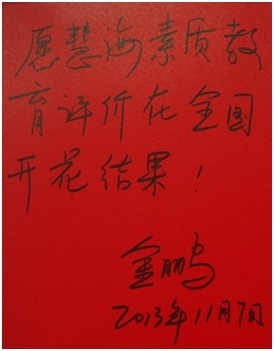 愿慧海素质教
育评价在全国
开花结果！
金鹏
2013年11月7日